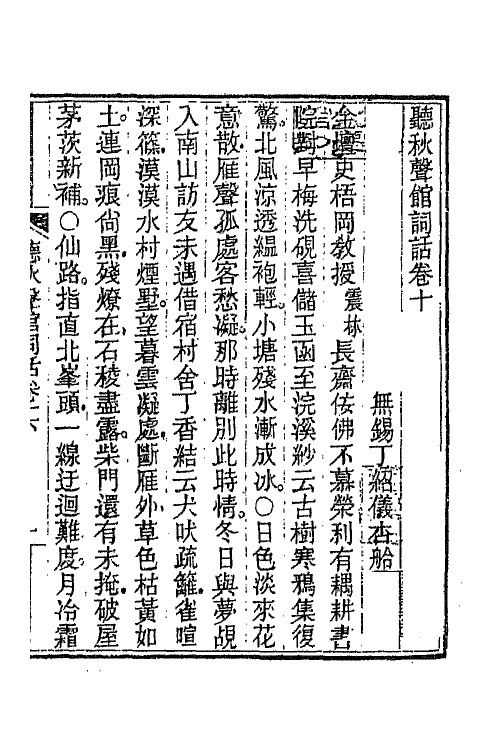 聽秋聲館詞話卷十
無錫丁紹儀杏舲
金壇史梧岡教授震林長齋佞佛不慕榮利有耦耕書
院對早梅洗硯喜儲玉函至浣溪紗云古樹寒鴉集復
驚北風涼透縕袍輕小塘殘水漸成冰○日色淡來花
意散雁聲孤處客愁凝那時離別此時情冬日與夢覘
入南山訪友未遇借宿村舍丁香結云犬吠疏籬雀喧
深篠漠漠水村煙墅望暮雲凝處斷雁外草色枯黃如
土連岡痕尙黑殘燎在石稜盡露柴門還有未掩破屋
茅茨新補○仙路指直北峯頭一線迂迴難度月冷霜
聽秋聲館詞話卷十
一